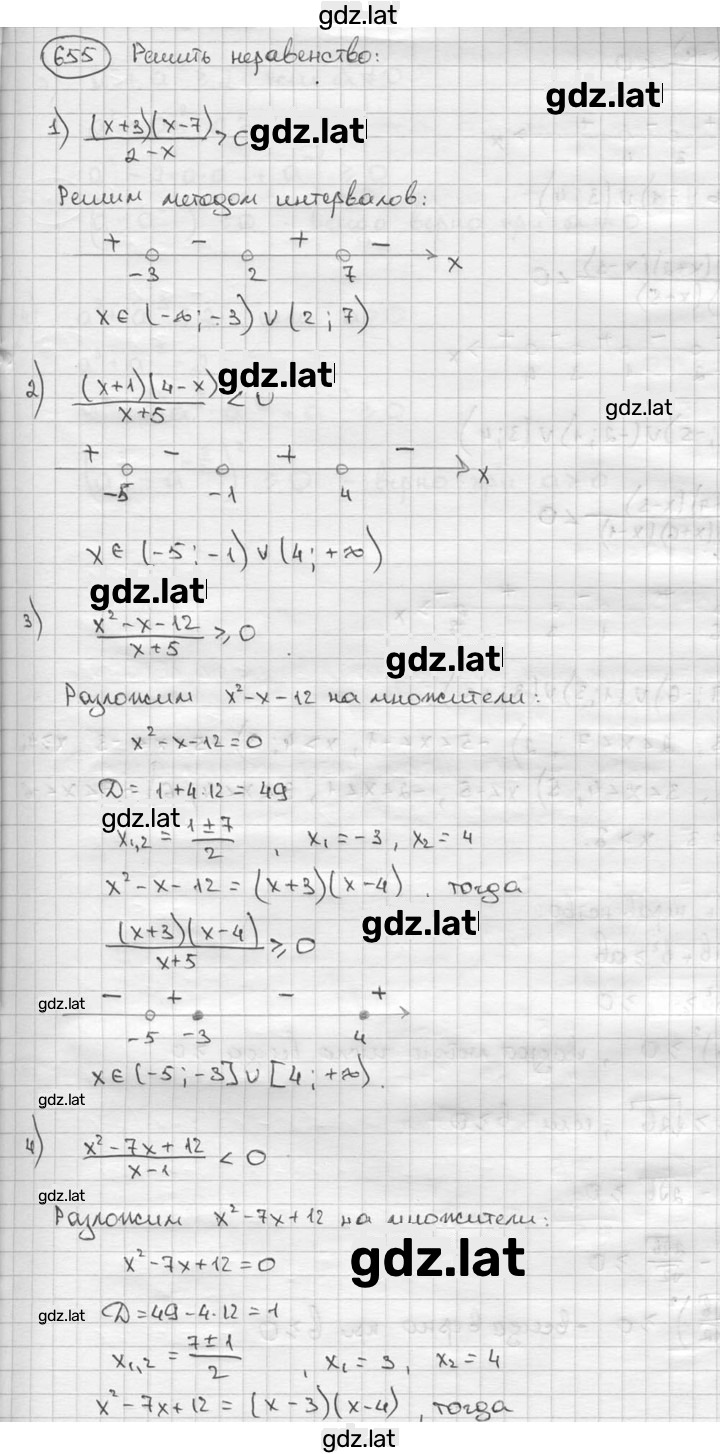 gdz.lat
655 Решить неравенство:
gdz.lat
1) (x+3)(x-7)/2-x > 0 gdz.lat
Решим методом интервалов:
+ - + -
-3 2 7 x
x∈(-∞;-3)∪(2;7)
2) (x+1)(4-x)/x+5 < 0 gdz.lat
gdz.lat
+ - + -
-5 -1 4 x
x∈(-5;-1)∪(4;+∞)
gdz.lat
3) x²-x-12/x+5 ⩾ 0
gdz.lat
Разложим x²-x-12 на множители:
x²-x-12=0
D=1+4·12=49
gdz.lat
x₁,₂ = 1±7/2, x₁=-3, x₂=4
x²-x-12=(x+3)(x-4), тогда
gdz.lat
(x+3)(x-4)/x+5 ⩾ 0
gdz.lat
- + - +
-5 -3 4
x∈(-5;-3]∪[4;+∞).
gdz.lat
4) x²-7x+12/x-1 < 0
gdz.lat
Разложим x²-7x+12 на множители:
x²-7x+12=0
gdz.lat
gdz.lat
D=49-4·12=1
x₁,₂ = 7±1/2, x₁=3, x₂=4
x²-7x+12=(x-3)(x-4), тогда
gdz.lat